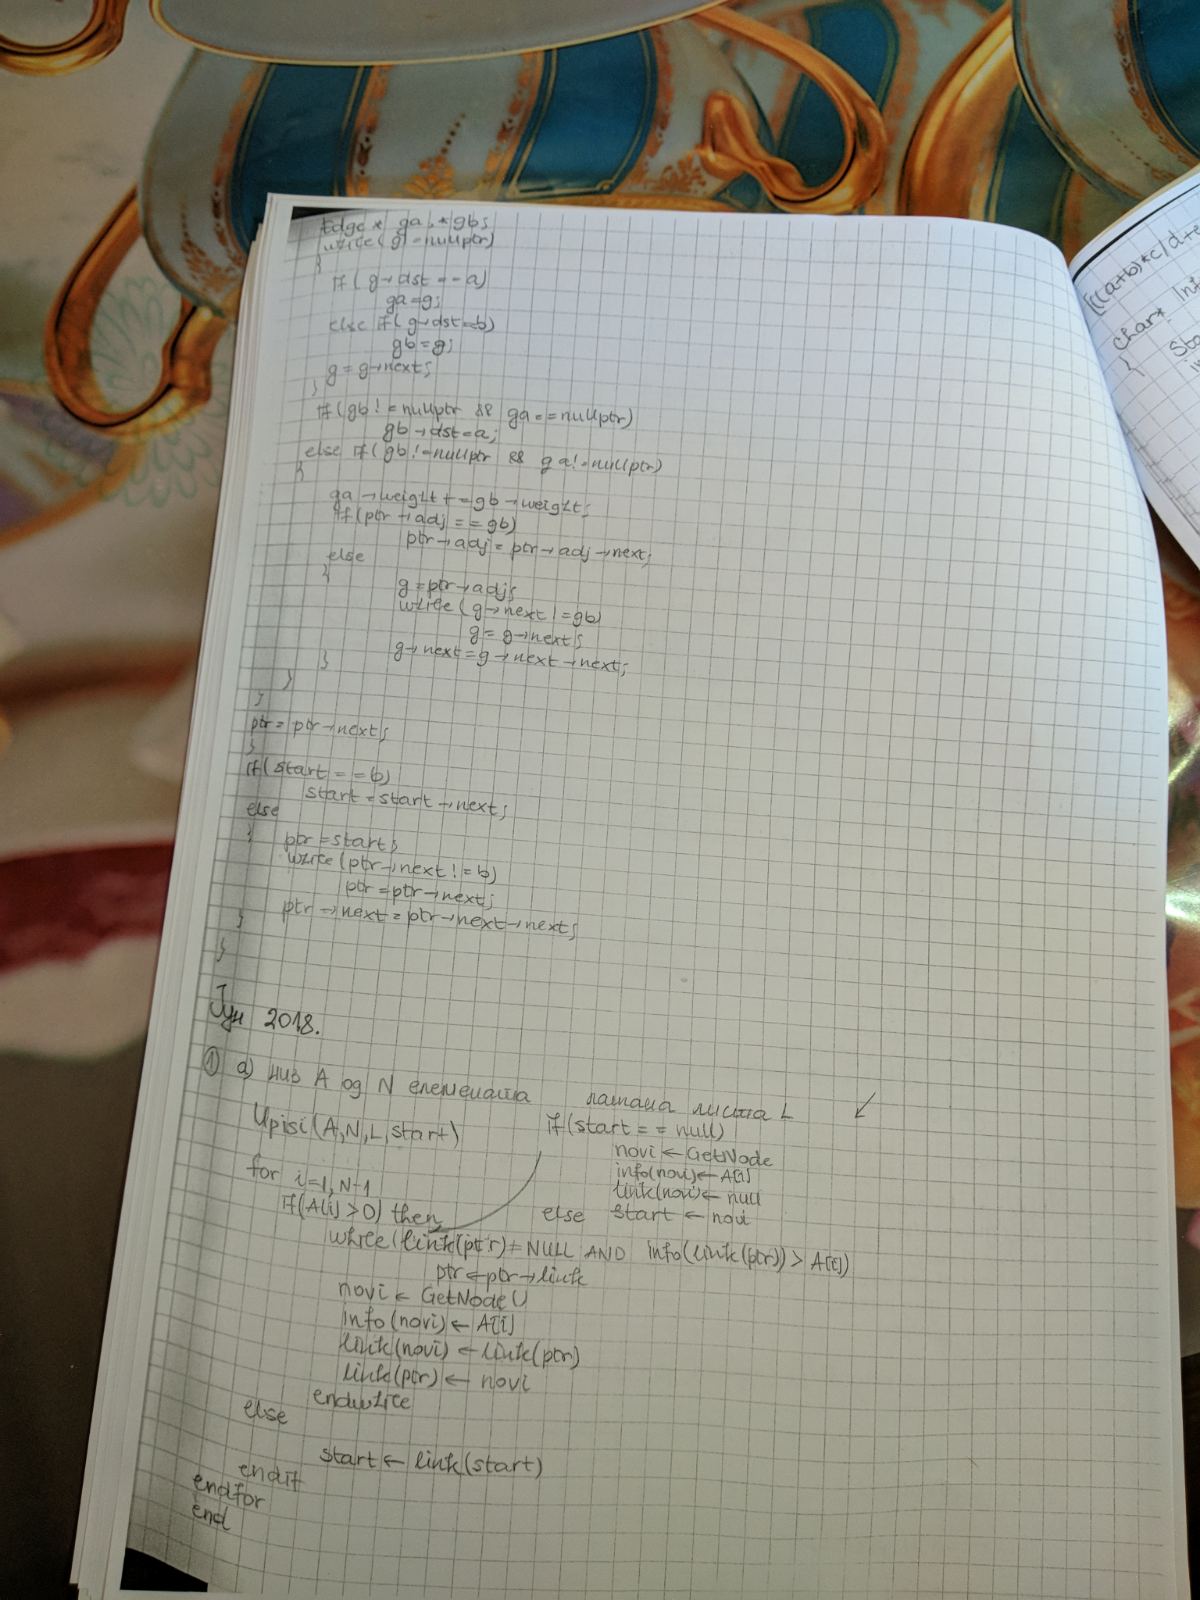 Edge* ga, *gb;
while(g!=nullptr)
{
if(g→dst==a)
ga=g;
else if(g→dst==b)
gb=g;
g=g→next;
}
if(gb!=nullptr && ga==nullptr)
gb→dst=a;
else if(gb!=nullptr && ga!=nullptr)
{
ga→weight+=gb→weight;
if(ptr→adj==gb)
ptr→adj=ptr→adj→next;
else
{
g=ptr→adj;
while(g→next!=gb)
g=g→next;
g→next=g→next→next;
}
}
}
ptr=ptr→next;
}
if(start==b)
start=start→next;
else
{ ptr=start;
while(ptr→next!=b)
ptr=ptr→next;
ptr→next=ptr→next→next;
}
}
Јун 2018.
① а) низ A од N елемената латана листа L ↙
Upisi(A,N,L,start)
if(start==null)
novi←GetNode
info(novi)←A[i]
link(novi)←null
else start←novi
for i=1,N-1
if(A[i]>0) then
while(link(ptr)≠NULL AND info(link(ptr))>A[i])
ptr←ptr→link
novi←GetNode()
info(novi)←A[i]
link(novi)←link(ptr)
link(ptr)←novi
endwhile
else
start←link(start)
endif
endfor
end
[((a+b)*c/d+e
char* Inf
{